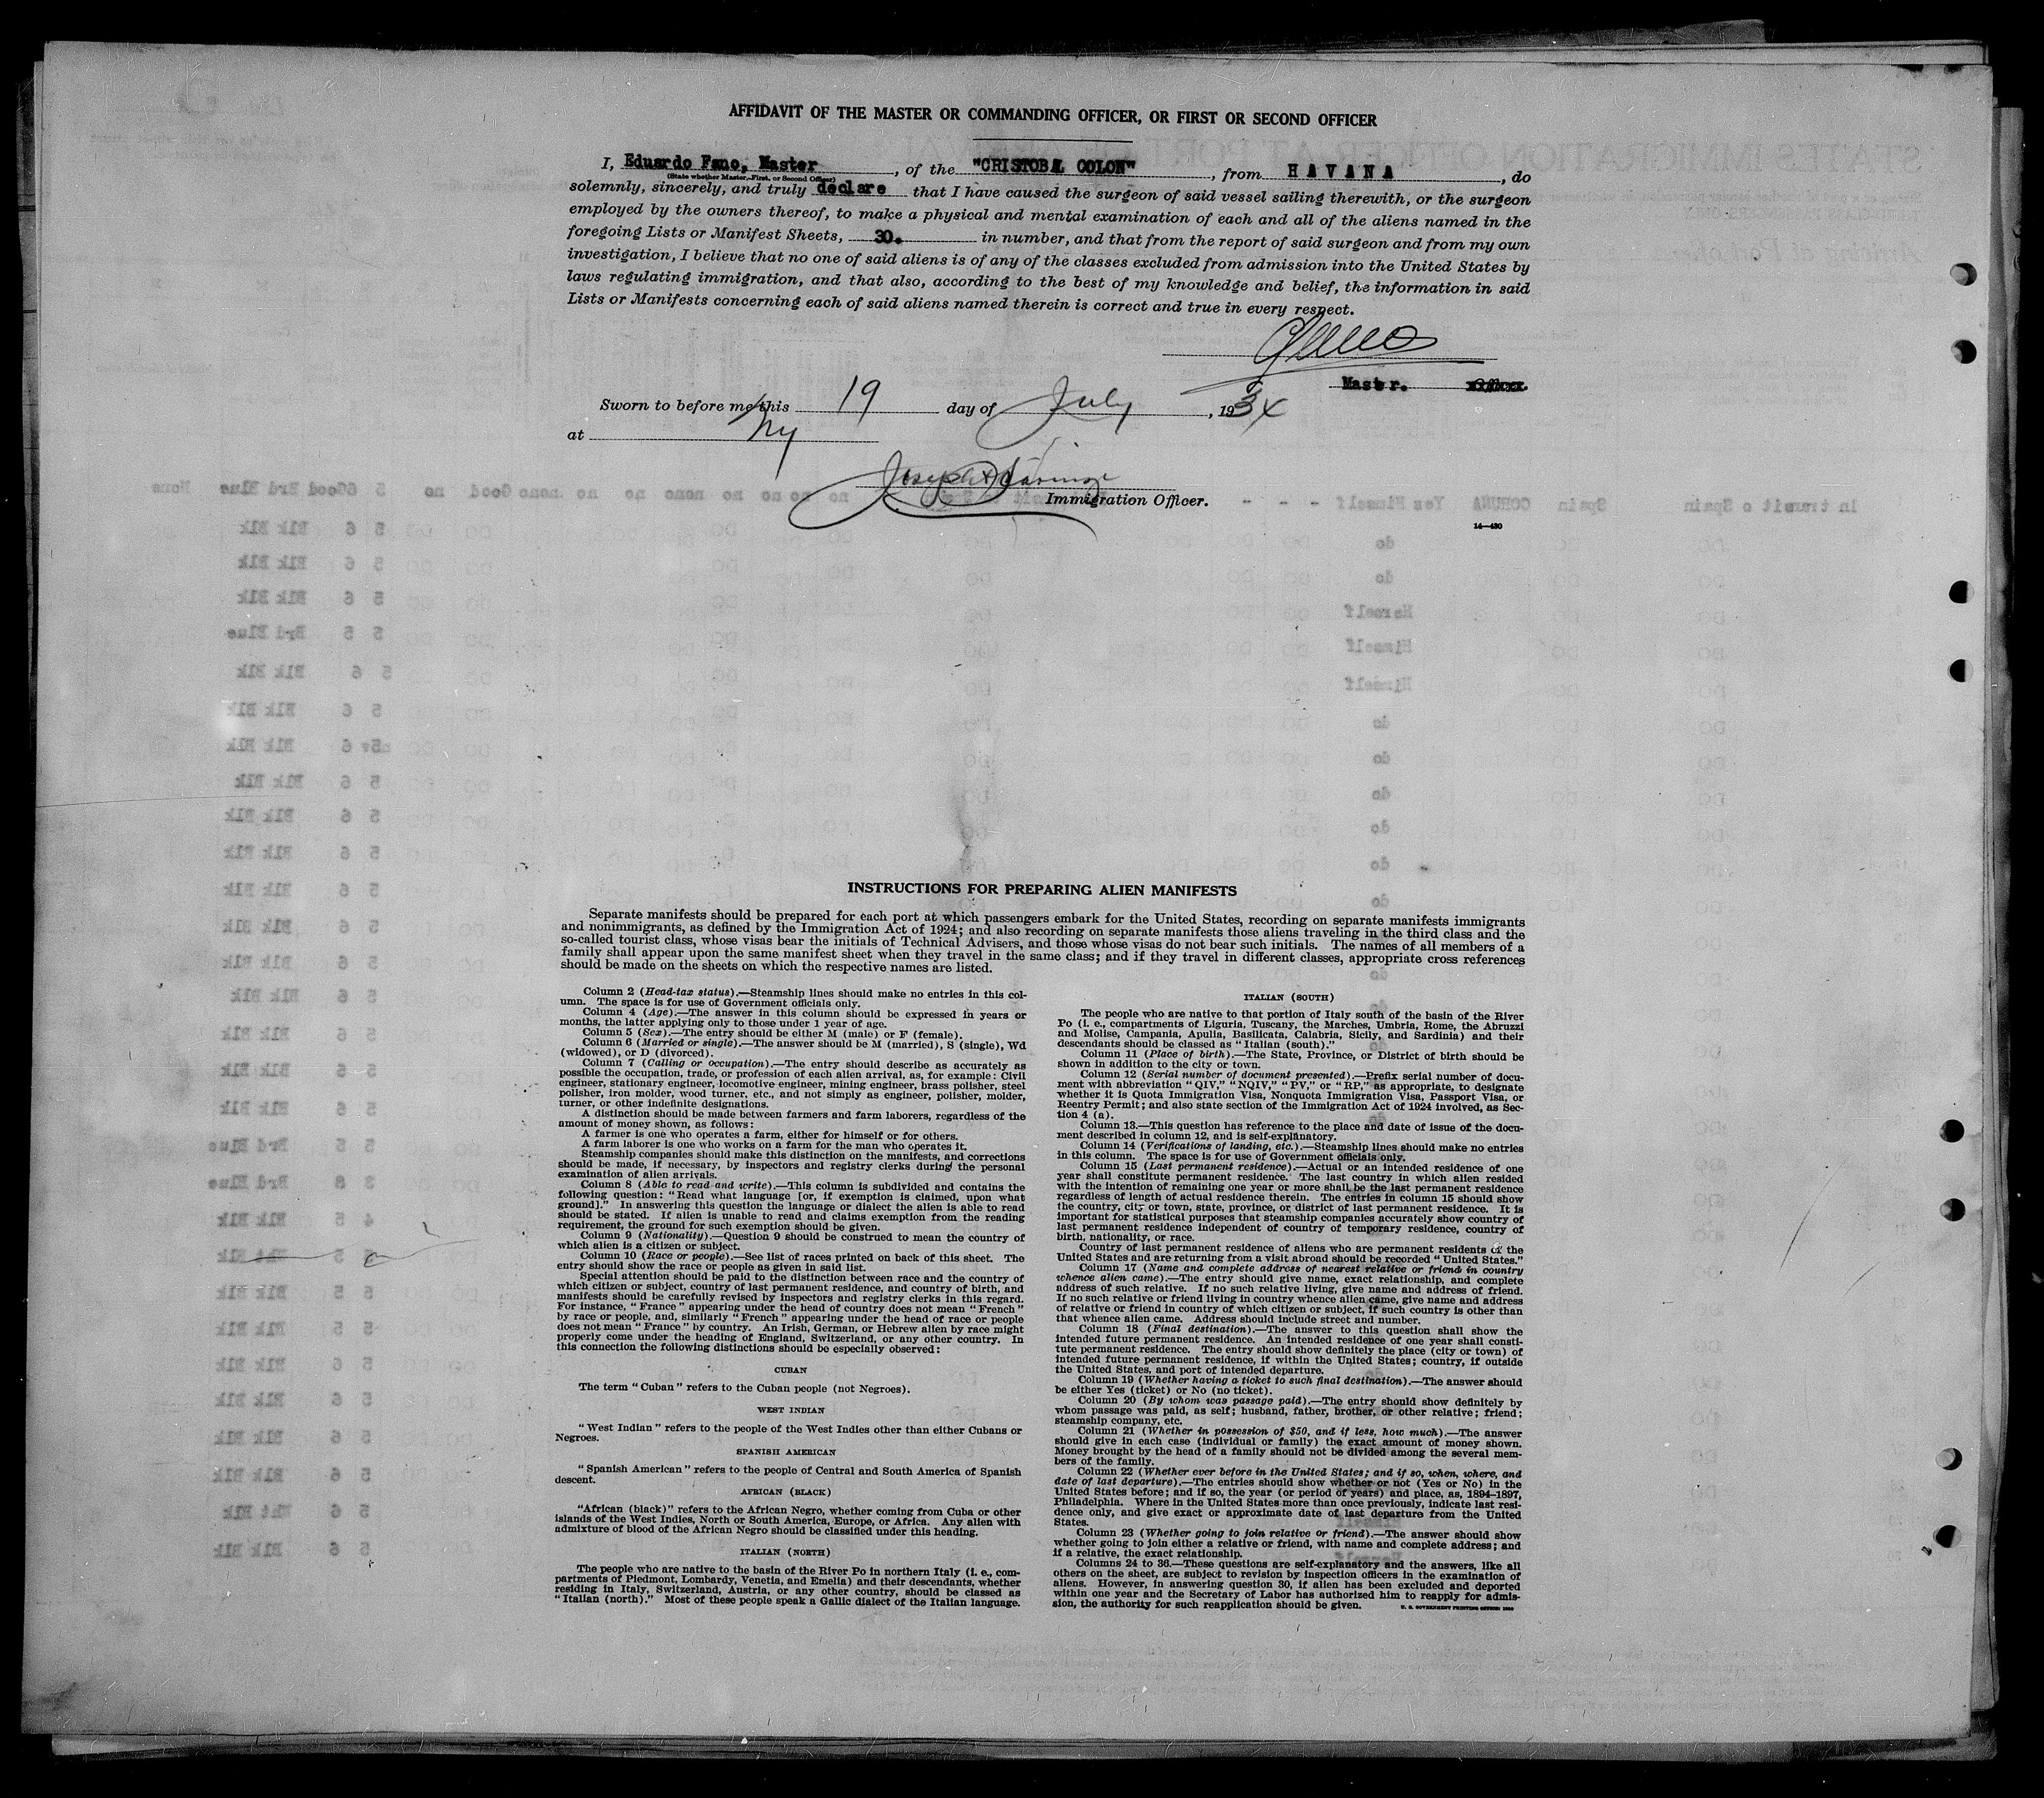 AFFIDAVIT OF THE MASTER OR COMMANDING OFFICER, OR FIRST OR SECOND OFFICER
I, Eduardo Fano, Master, of the "CRISTOBAL COLON", from HAVANA, do
(State whether Master, First, or Second Officer)
solemnly, sincerely, and truly declare that I have caused the surgeon of said vessel sailing therewith, or the surgeon
employed by the owners thereof, to make a physical and mental examination of each and all of the aliens named in the
foregoing Lists or Manifest Sheets, 30. in number, and that from the report of said surgeon and from my own
investigation, I believe that no one of said aliens is of any of the classes excluded from admission into the United States by
laws regulating immigration, and that also, according to the best of my knowledge and belief, the information in said
Lists or Manifests concerning each of said aliens named therein is correct and true in every respect.
Master.
Sworn to before me this 19 day of July, 1934
at NY
Immigration Officer.
14—430
INSTRUCTIONS FOR PREPARING ALIEN MANIFESTS
Separate manifests should be prepared for each port at which passengers embark for the United States, recording on separate manifests immigrants
and nonimmigrants, as defined by the Immigration Act of 1924; and also recording on separate manifests those aliens traveling in the third class and the
so-called tourist class, whose visas bear the initials of Technical Advisers, and those whose visas do not bear such initials. The names of all members of a
family shall appear upon the same manifest sheet when they travel in the same class; and if they travel in different classes, appropriate cross references
should be made on the sheets on which the respective names are listed.
Column 2 (Head-tax status).—Steamship lines should make no entries in this col-
umn. The space is for use of Government officials only.
Column 4 (Age).—The answer in this column should be expressed in years or
months, the latter applying only to those under 1 year of age.
Column 5 (Sex).—The entry should be either M (male) or F (female).
Column 6 (Married or single).—The answer should be M (married), S (single), Wd
(widowed), or D (divorced).
Column 7 (Calling or occupation).—The entry should describe as accurately as
possible the occupation, trade, or profession of each alien arrival, as, for example: Civil
engineer, stationary engineer, locomotive engineer, mining engineer, brass polisher, steel
polisher, iron molder, wood turner, etc., and not simply as engineer, polisher, molder,
turner, or other indefinite designations.
A distinction should be made between farmers and farm laborers, regardless of the
amount of money shown, as follows:
A farmer is one who operates a farm, either for himself or for others.
A farm laborer is one who works on a farm for the man who operates it.
Steamship companies should make this distinction on the manifests, and corrections
should be made, if necessary, by inspectors and registry clerks during the personal
examination of alien arrivals.
Column 8 (Able to read and write).—This column is subdivided and contains the
following question: "Read what language [or, if exemption is claimed, upon what
ground]." In answering this question the language or dialect the alien is able to read
should be stated. If alien is unable to read and claims exemption from the reading
requirement, the ground for such exemption should be given.
Column 9 (Nationality).—Question 9 should be construed to mean the country of
which alien is a citizen or subject.
Column 10 (Race or people).—See list of races printed on back of this sheet. The
entry should show the race or people as given in said list.
Special attention should be paid to the distinction between race and the country of
which citizen or subject, country of last permanent residence, and country of birth, and
manifests should be carefully revised by inspectors and registry clerks in this regard.
For instance, "France" appearing under the head of country does not mean "French"
by race or people, and, similarly "French" appearing under the head of race or people
does not mean "France" by country. An Irish, German, or Hebrew alien by race might
properly come under the heading of England, Switzerland, or any other country. In
this connection the following distinctions should be especially observed:
CUBAN
The term "Cuban" refers to the Cuban people (not Negroes).
WEST INDIAN
"West Indian" refers to the people of the West Indies other than either Cubans or
Negroes.
SPANISH AMERICAN
"Spanish American" refers to the people of Central and South America of Spanish
descent.
AFRICAN (BLACK)
"African (black)" refers to the African Negro, whether coming from Cuba or other
islands of the West Indies, North or South America, Europe, or Africa. Any alien with
admixture of blood of the African Negro should be classified under this heading.
ITALIAN (NORTH)
The people who are native to the basin of the River Po in northern Italy (i. e., com-
partments of Piedmont, Lombardy, Venetia, and Emelia) and their descendants, whether
residing in Italy, Switzerland, Austria, or any other country, should be classed as
"Italian (north)." Most of these people speak a Gallic dialect of the Italian language.
ITALIAN (SOUTH)
The people who are native to that portion of Italy south of the basin of the River
Po (i. e., compartments of Liguria, Tuscany, the Marches, Umbria, Rome, the Abruzzi
and Molise, Campania, Apulia, Basilicata, Calabria, Sicily, and Sardinia) and their
descendants should be classed as "Italian (south)."
Column 11 (Place of birth).—The State, Province, or District of birth should be
shown in addition to the city or town.
Column 12 (Serial number of document presented).—Prefix serial number of docu-
ment with abbreviation "QIV," "NQIV," "PV," or "RP," as appropriate, to designate
whether it is Quota Immigration Visa, Nonquota Immigration Visa, Passport Visa, or
Reentry Permit; and also state section of the Immigration Act of 1924 involved, as Sec-
tion 4 (a).
Column 13.—This question has reference to the place and date of issue of the docu-
ment described in column 12, and is self-explanatory.
Column 14 (Verifications of landing, etc.).—Steamship lines should make no entries
in this column. The space is for use of Government officials only.
Column 15 (Last permanent residence).—Actual or an intended residence of one
year shall constitute permanent residence. The last country in which alien resided
with the intention of remaining one year or more shall be the last permanent residence
regardless of length of actual residence therein. The entries in column 15 should show
the country, city or town, state, province, or district of last permanent residence. It is
important for statistical purposes that steamship companies accurately show country of
last permanent residence independent of country of temporary residence, country of
birth, nationality, or race.
Country of last permanent residence of aliens who are permanent residents of the
United States and are returning from a visit abroad should be recorded "United States."
Column 17 (Name and complete address of nearest relative or friend in country
whence alien came).—The entry should give name, exact relationship, and complete
address of such relative. If no such relative living, give name and address of friend.
If no such relative or friend living in country whence alien came, give name and address
of relative or friend in country of which citizen or subject, if such country is other than
that whence alien came. Address should include street and number.
Column 18 (Final destination).—The answer to this question shall show the
intended future permanent residence. An intended residence of one year shall consti-
tute permanent residence. The entry should show definitely the place (city or town) of
intended future permanent residence, if within the United States; country, if outside
the United States, and port of intended departure.
Column 19 (Whether having a ticket to such final destination).—The answer should
be either Yes (ticket) or No (no ticket).
Column 20 (By whom was passage paid).—The entry should show definitely by
whom passage was paid, as self; husband, father, brother, or other relative; friend;
steamship company, etc.
Column 21 (Whether in possession of $50, and if less, how much).—The answer
should give in each case (individual or family) the exact amount of money shown.
Money brought by the head of a family should not be divided among the several mem-
bers of the family.
Column 22 (Whether ever before in the United States; and if so, when, where, and
date of last departure).—The entries should show whether or not (Yes or No) in the
United States before; and if so, the year (or period of years) and place, as, 1894–1897,
Philadelphia. Where in the United States more than once previously, indicate last resi-
dence only, and give exact or approximate date of last departure from the United
States.
Column 23 (Whether going to join relative or friend).—The answer should show
whether going to join either a relative or friend, with name and complete address; and
if a relative, the exact relationship.
Columns 24 to 36.—These questions are self-explanatory and the answers, like all
others on the sheet, are subject to revision by inspection officers in the examination of
aliens. However, in answering question 30, if alien has been excluded and deported
within one year and the Secretary of Labor has authorized him to reapply for admis-
sion, the authority for such reapplication should be given.
U. S. GOVERNMENT PRINTING OFFICE